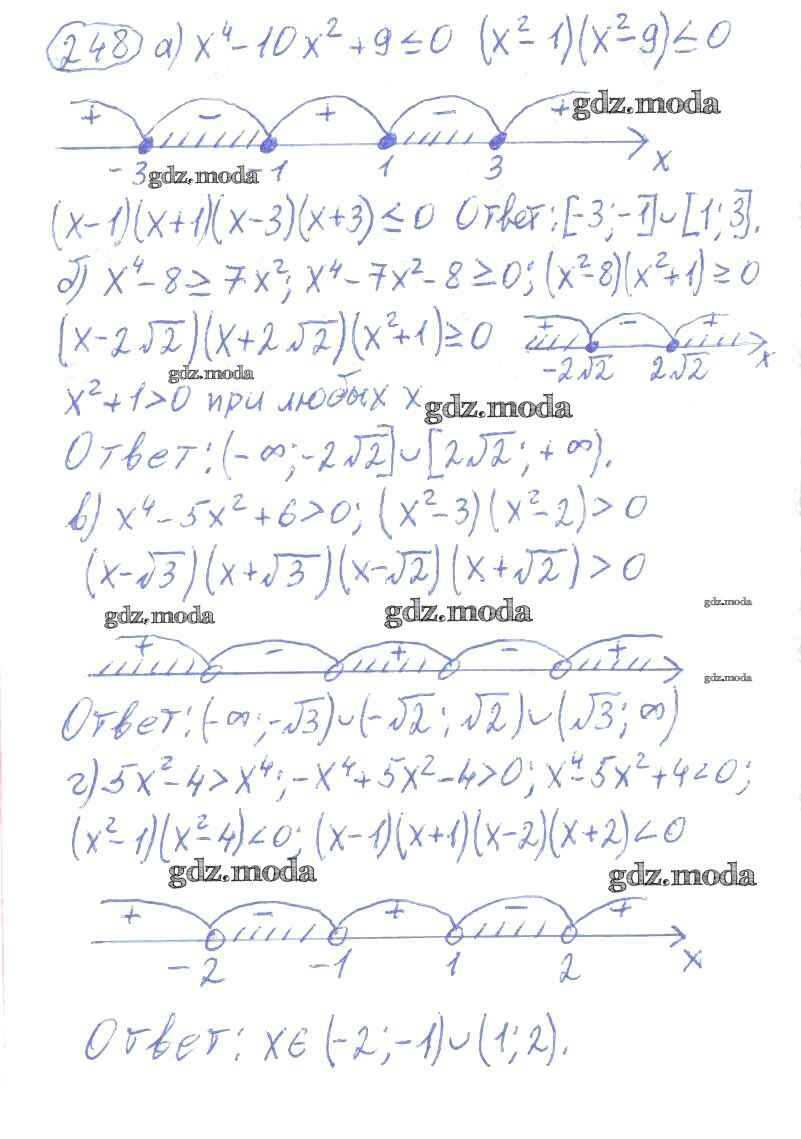 248 а) x⁴ – 10x² + 9 ≤ 0 (x² – 1)(x² – 9) ≤ 0
+ – + – +
gdz.moda
-3 -1 1 3 x
gdz.moda
(x – 1)(x + 1)(x – 3)(x + 3) ≤ 0 Ответ: [-3; -1] ∪ [1; 3].
б) x⁴ – 8 ≥ 7x²; x⁴ – 7x² – 8 ≥ 0; (x² – 8)(x² + 1) ≥ 0
(x – 2√2)(x + 2√2)(x² + 1) ≥ 0
+ – +
-2√2 2√2 x
gdz.moda
x² + 1 > 0 при любых x
gdz.moda
Ответ: (-∞; -2√2] ∪ [2√2; +∞).
в) x⁴ – 5x² + 6 > 0; (x² – 3)(x² – 2) > 0
(x – √3)(x + √3)(x – √2)(x + √2) > 0
gdz.moda gdz.moda gdz.moda
+ – + – +
gdz.moda
Ответ: (-∞; -√3) ∪ (-√2; √2) ∪ (√3; ∞)
г) 5x² – 4 > x⁴; -x⁴ + 5x² – 4 > 0; x⁴ – 5x² + 4 < 0;
(x² – 1)(x² – 4) < 0; (x – 1)(x + 1)(x – 2)(x + 2) < 0
gdz.moda gdz.moda
+ – + – +
-2 -1 1 2 x
Ответ: x ∈ (-2; -1) ∪ (1; 2).